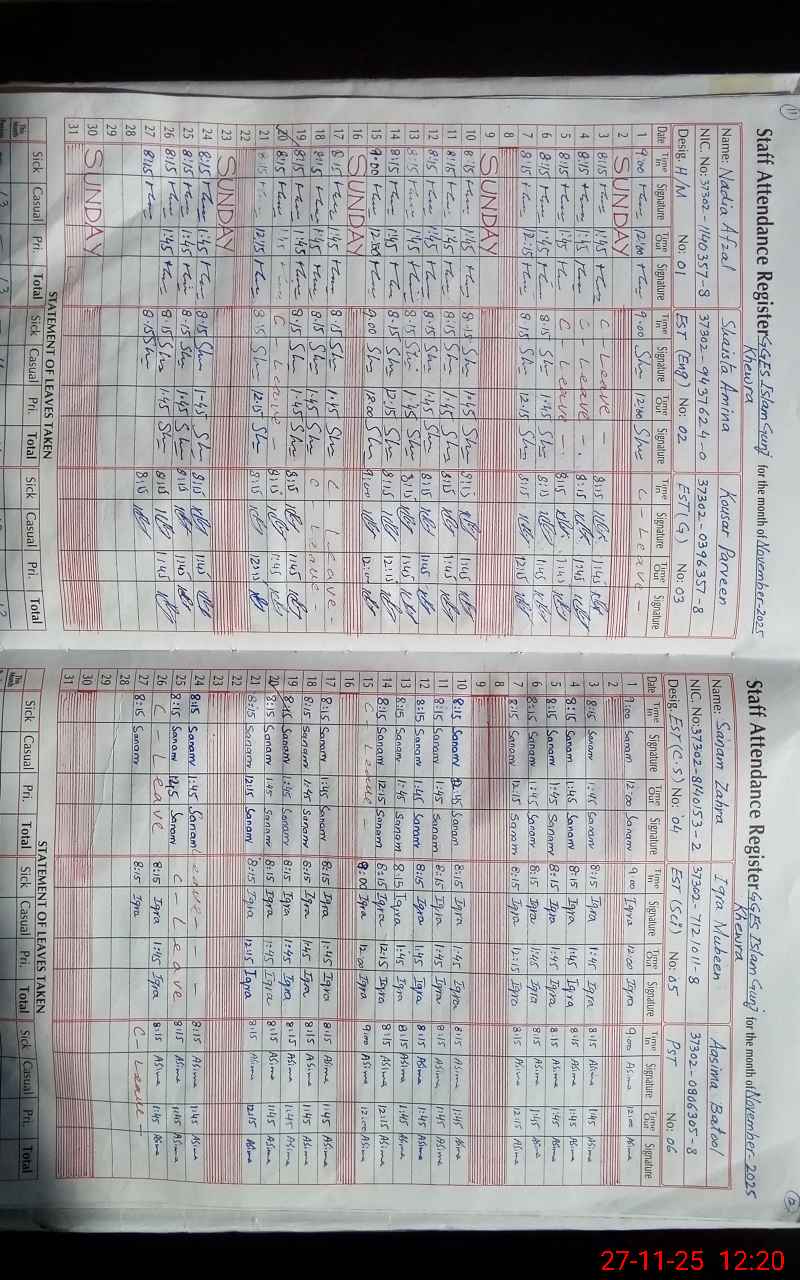 Staff Attendance Register GGES Islam Gunj Khewra for the month of November-2025
Name: Nadia Afzal Shaista Amina Kousar Parveen
NIC. No: 37302-1140357-8 37302-9437624-0 37302-0396357-8
Desig. H/M No: 01 EST (Eng) No: 02 EST (G) No: 03
Date Time In Signature Time Out Signature Time In Signature Time Out Signature Time In Signature Time Out Signature
1 9:00 12:00 9:00 12:00 C - Leave -
2 SUNDAY
3 8:15 1:45 C - Leave - 8:15 1:45
4 8:15 1:45 C - Leave - 8:15 1:45
5 8:15 1:45 C Leave - 8:15 1:45
6 8:15 1:45 8:15 1:45 8:15 1:45
7 8:15 12:15 8:15 12:15 8:15 12:15
8
9 SUNDAY
10 8:15 1:45 8:15 1:45 8:15 1:45
11 8:15 1:45 8:15 1:45 8:15 1:45
12 8:15 1:45 8:15 1:45 8:15 1:45
13 8:15 1:45 8:15 1:45 8:15 1:45
14 8:15 1:45 8:15 12:15 8:15 12:15
15 9:00 12:00 9:00 9:00 12:00
16 SUNDAY
17 8:15 1:45 8:15 1:45 C - Leave -
18 8:15 1:45 8:15 1:45 C - Leave -
19 8:15 1:45 8:15 1:45 8:15 1:45
20 8:15 1:45 C - Leave - 8:15 1:45
21 8:15 12:15 8:15 12:15 8:15 12:15
22
23 SUNDAY
24 8:15 1:45 8:15 1:45 8:15 1:45
25 8:15 1:45 8:15 1:45 8:15 1:45
26 8:15 1:45 8:15 1:45 8:15 1:45
27 8:15 8:15 8:15
28
29
30 SUNDAY
31
STATEMENT OF LEAVES TAKEN
Sick Casual Pri. Total Sick Casual Pri. Total Sick Casual Pri. Total
This Month
Staff Attendance Register GGES Islam Gunj Khewra for the month of November-2025
Name: Sanam Zahra Iqra Mubeen Aasima Batool
NIC. No: 37302-8140153-2 37302-7121011-8 37302-0806305-8
Desig. EST (C.S) No: 04 EST (Sci) No: 05 PST No: 06
Date Time In Signature Time Out Signature Time In Signature Time Out Signature Time In Signature Time Out Signature
1 9:00 Sanam 12:00 Sanam 9:00 Iqra 12:00 Iqra 9:00 Asima 12:00 Asima
2
3 8:15 Sanam 1:45 Sanam 8:15 Iqra 1:45 Iqra 8:15 Asima 1:45 Asima
4 8:15 Sanam 1:45 Sanam 8:15 Iqra 1:45 Iqra 8:15 Asima 1:45 Asima
5 8:15 Sanam 1:45 Sanam 8:15 Iqra 1:45 Iqra 8:15 Asima 1:45 Asima
6 8:15 Sanam 1:45 Sanam 8:15 Iqra 1:45 Iqra 8:15 Asima 1:45 Asima
7 8:15 Sanam 12:15 Sanam 8:15 Iqra 12:15 Iqra 8:15 Asima 12:15 Asima
8
9
10 8:15 Sanam Sanam 8:15 Iqra 1:45 Iqra 8:15 Asima 1:45 Asima
11 8:15 Sanam 1:45 Sanam 8:15 Iqra 1:45 Iqra 8:15 Asima 1:45 Asima
12 8:15 Sanam 1:45 Sanam 8:15 Iqra 1:45 Iqra 8:15 Asima 1:45 Asima
13 8:15 Sanam 1:45 Sanam 8:15 Iqra 1:45 Iqra 8:15 Asima 1:45 Asima
14 8:15 Sanam 12:15 Sanam 8:15 Iqra 12:15 Iqra 8:15 Asima 12:15 Asima
15 C - Leave - 9:00 Iqra 12:00 Iqra 9:00 Asima 12:00 Asima
16
17 8:15 Sanam 1:45 Sanam 8:15 Iqra 1:45 Iqra 8:15 Asima 1:45 Asima
18 8:15 Sanam 1:45 Sanam 8:15 Iqra 1:45 Iqra 8:15 Asima 1:45 Asima
19 8:15 Sanam 1:45 Sanam 8:15 Iqra 1:45 Iqra 8:15 Asima 1:45 Asima
20 8:15 Sanam 1:45 Sanam 8:15 Iqra 1:45 Iqra 8:15 Asima 1:45 Asima
21 8:15 Sanam 12:15 Sanam 8:15 Iqra 12:15 Iqra 8:15 Asima 12:15 Asima
22
23
24 8:15 Sanam 1:45 Sanam Leave - - 8:15 Asima 1:45 Asima
25 8:15 Sanam Sanam C - Leave 8:15 Asima 1:45 Asima
26 C - Leave 8:15 Iqra 1:45 Iqra 8:15 Asima 1:45 Asima
27 8:15 Sanam 8:15 Iqra C - Leave -
28
29
30
31
STATEMENT OF LEAVES TAKEN
Sick Casual Pri. Total Sick Casual Pri. Total Sick Casual Pri. Total
This Month
27-11-25 12:20